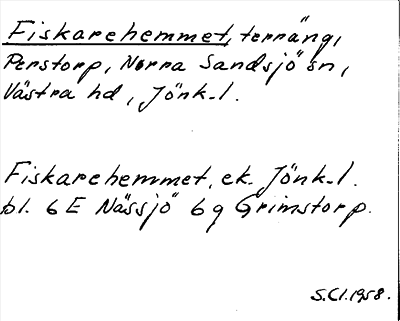 Fiskarehemmet, terräng,
Perstorp, Norra Sandsjö sn,
Västra hd, Jönk.l.
Fiskarehemmet, ek. Jönk.l.
bl. 6 E Nässjö 6 g Grimstorp.
S.Cl.1958.